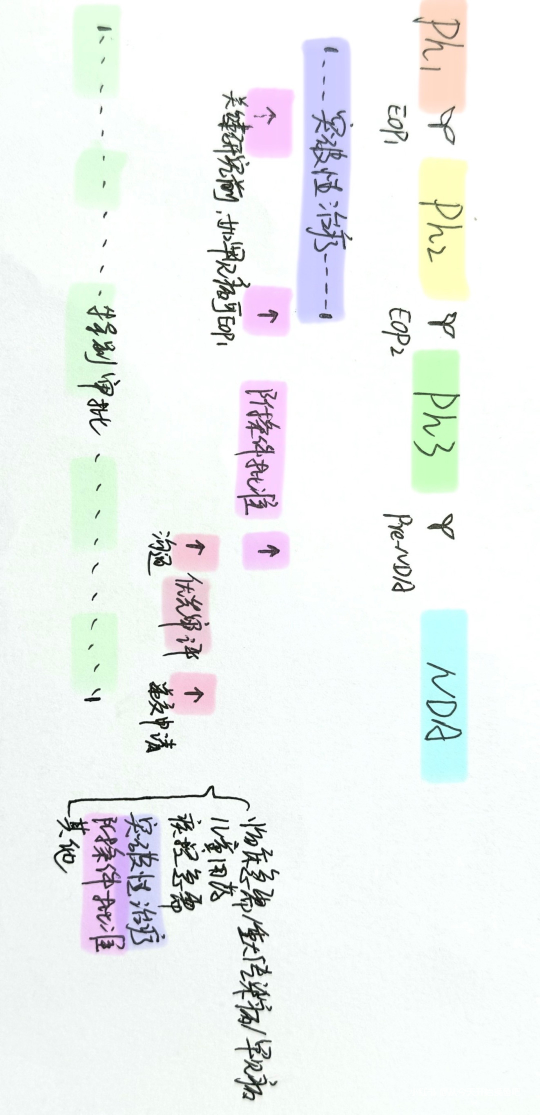 Ph1
Ph2
Ph3
NDA
EOP1
EOP2
Pre-NDA
突破性治疗
↑
↑
附条件批准
↑
关键研究前,如罕见病可EOP1
↑
优先审评
↑
沟通
递交申请
特别审批
临床急需/重大传染病/罕见病
儿童用药
疾控急需
突破性治疗
附条件批准
其他